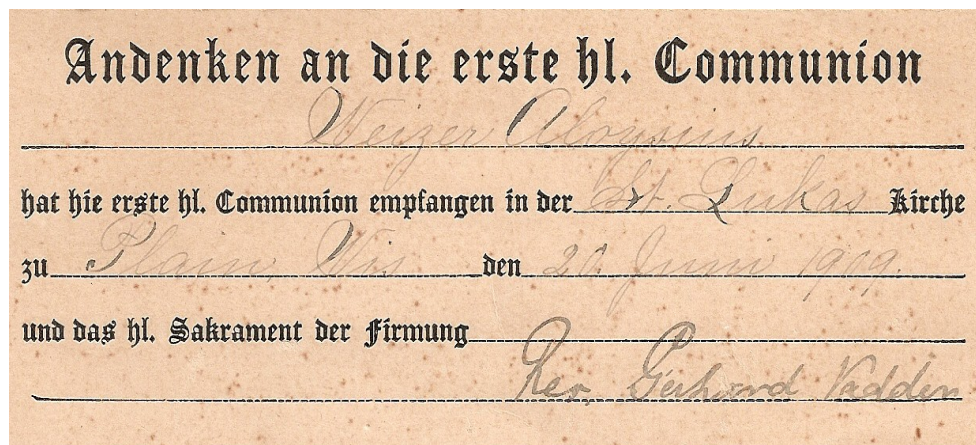 Andenken an die erste hl. Communion
Weizer Aloysius
hat hie erste hl. Communion empfangen in der St. Lukas Kirche
zu Plain, Wis den 20. Juni 1909.
und das hl. Sakrament der Firmung
Rev. Gerhard Vadden